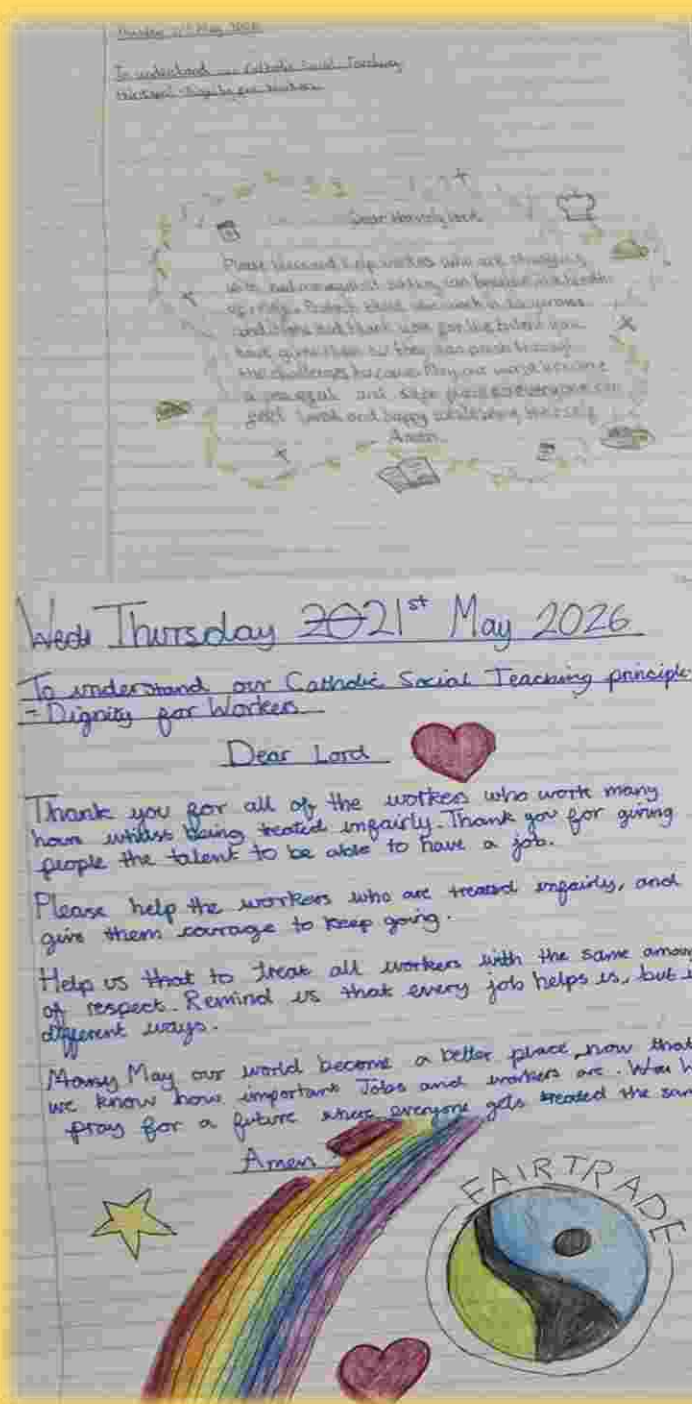 Thursday 21st May 2026
To understand our Catholic Social Teaching
principal - Dignity for Workers
Dear Heavenly Lord,
Please bless and help workers who are struggling
with
Protect those who work in dangerous
conditions and thank you for the talent you
have given them so they can push through
the challenges May our world become
a peaceful and safe place so everyone can
feel loved and happy
Amen
Weds Thursday 20 21st May 2026
To understand our Catholic Social Teaching principle
- Dignity for Workers
Dear Lord
Thank you for all of the workers who work many
hours whilst being treated unfairly. Thank you for giving
people the talent to be able to have a job.
Please help the workers who are treated unfairly, and
give them courage to keep going.
Help us that to treat all workers with the same
of respect. Remind us that every job helps us, but
different ways.
May our world become a better place, now that
we know how important Jobs and workers are.
pray for a future where everyone gets treated the
Amen
FAIRTRADE